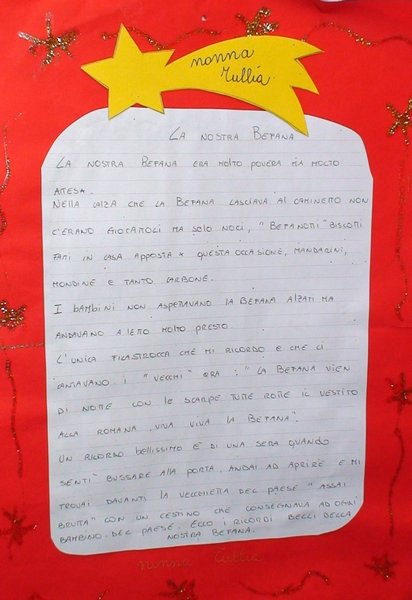 nonna
Tullia
LA NOSTRA BEFANA
LA NOSTRA BEFANA ERA MOLTO POVERA MA MOLTO
ATTESA.
NELLA CALZA CHE LA BEFANA LASCIAVA AL CAMINETTO NON
C'ERANO GIOCATTOLI MA SOLO NOCI, "BEFANOTTI" BISCOTTI
FATTI IN CASA APPOSTA X QUESTA OCCASIONE, MANDARINI,
MONDINE E TANTO CARBONE.
I BAMBINI NON ASPETTAVANO LA BEFANA ALZATI MA
ANDAVANO A LETTO MOLTO PRESTO.
L'UNICA FILASTROCCA CHE MI RICORDO E CHE CI
CANTAVANO I "VECCHI" ERA: "LA BEFANA VIEN
DI NOTTE CON LE SCARPE TUTTE ROTTE IL VESTITO
ALLA ROMANA VIVA VIVA LA BEFANA".
UN RICORDO BELLISSIMO È DI UNA SERA QUANDO
SENTI' BUSSARE ALLA PORTA, ANDAI AD APRIRE E MI
TROVAI DAVANTI LA VECCHIETTA DEL PAESE "ASSAI
BRUTTA" CON UN CESTINO CHE CONSEGNAVA AD OGNI
BAMBINO DEL PAESE. ECCO I RICORDI BELLI DELLA
NOSTRA BEFANA.
nonna Tullia